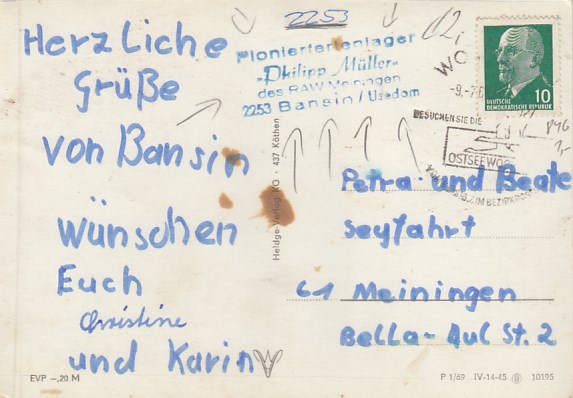 Herzliche
Grüße
von Bansin
wünschen
Euch
Christine
und Karin
EVP –,20 M
2253
Pionierferienlager
"Philipp Müller"
des RAW Meiningen
2253 Bansin / Usedom
DEUTSCHE
DEMOKRATISCHE REPUBLIK
10
BESUCHEN SIE DIE
OSTSEEWO
Heldge-Verlag KG · 437 Köthen
Petra und Beate
Seyfahrt
61 Meiningen
Bella-Aul St. 2
P 1/69 IV-14-45 10195